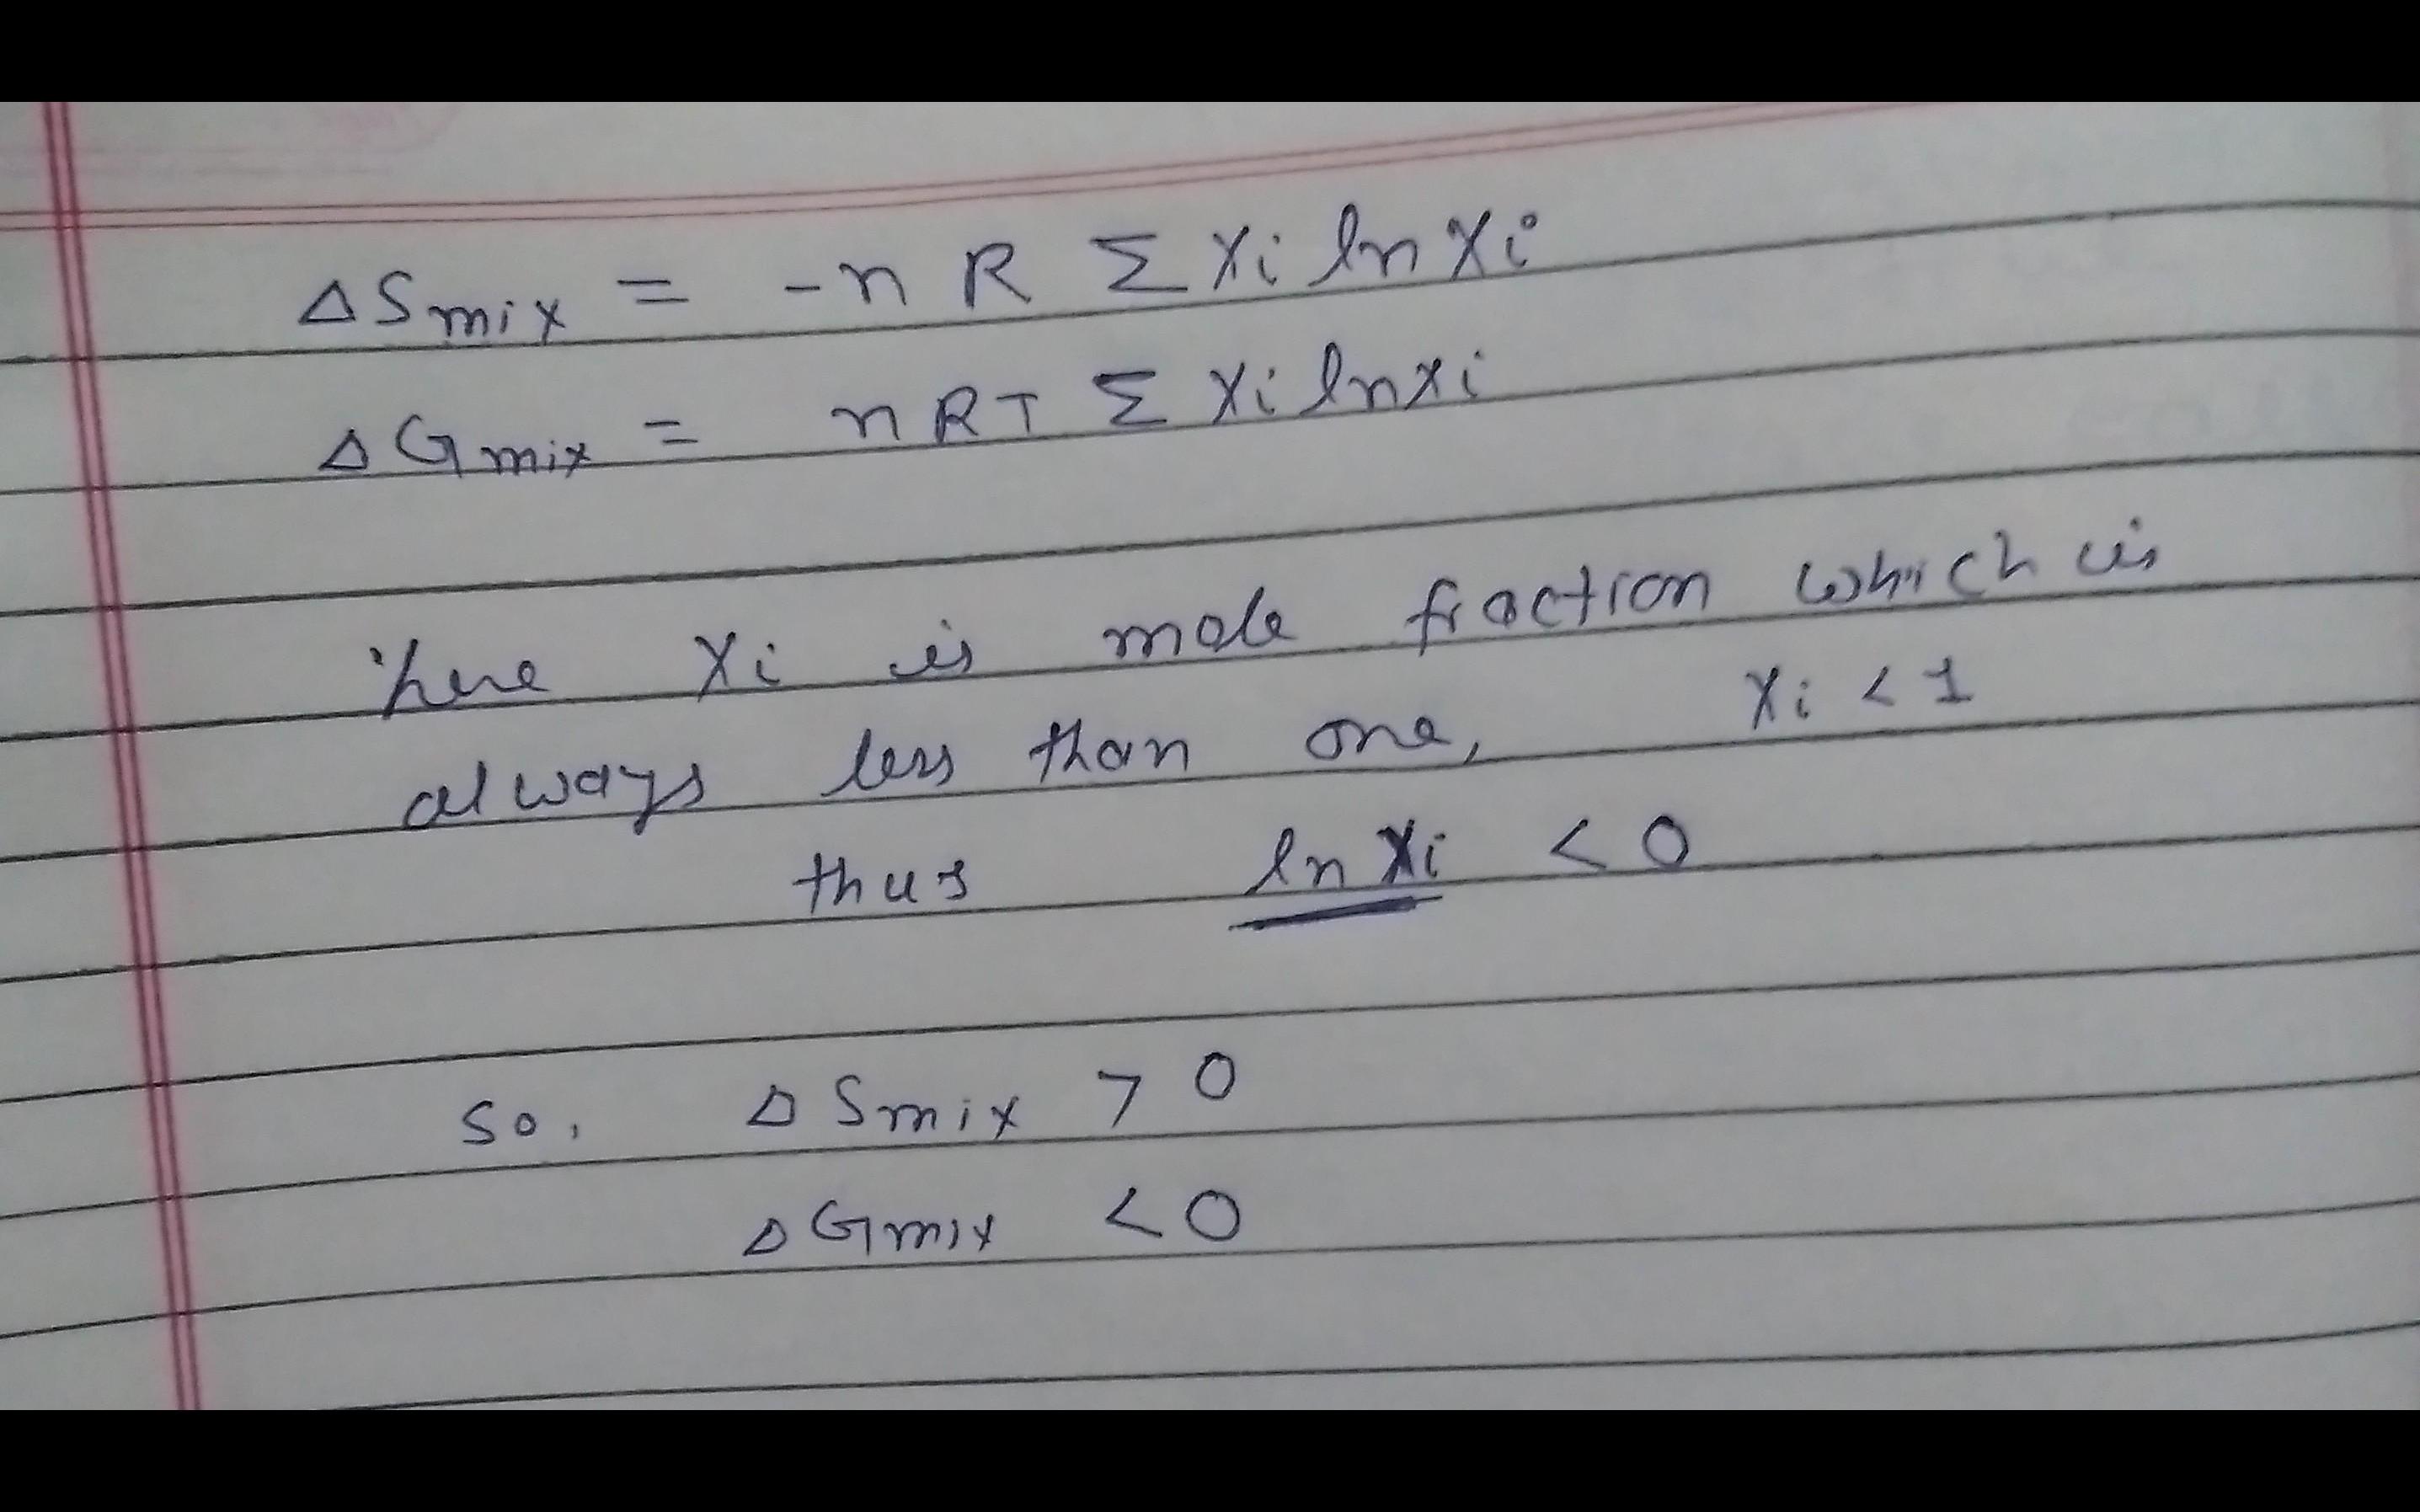 ΔSmix = -nR Σ Xi ln Xi
ΔGmix = nRT Σ Xi ln xi
here Xi is mole fraction which is
always less than one, Xi < 1
thus ln Xi < 0
so, ΔSmix > 0
ΔGmix < 0